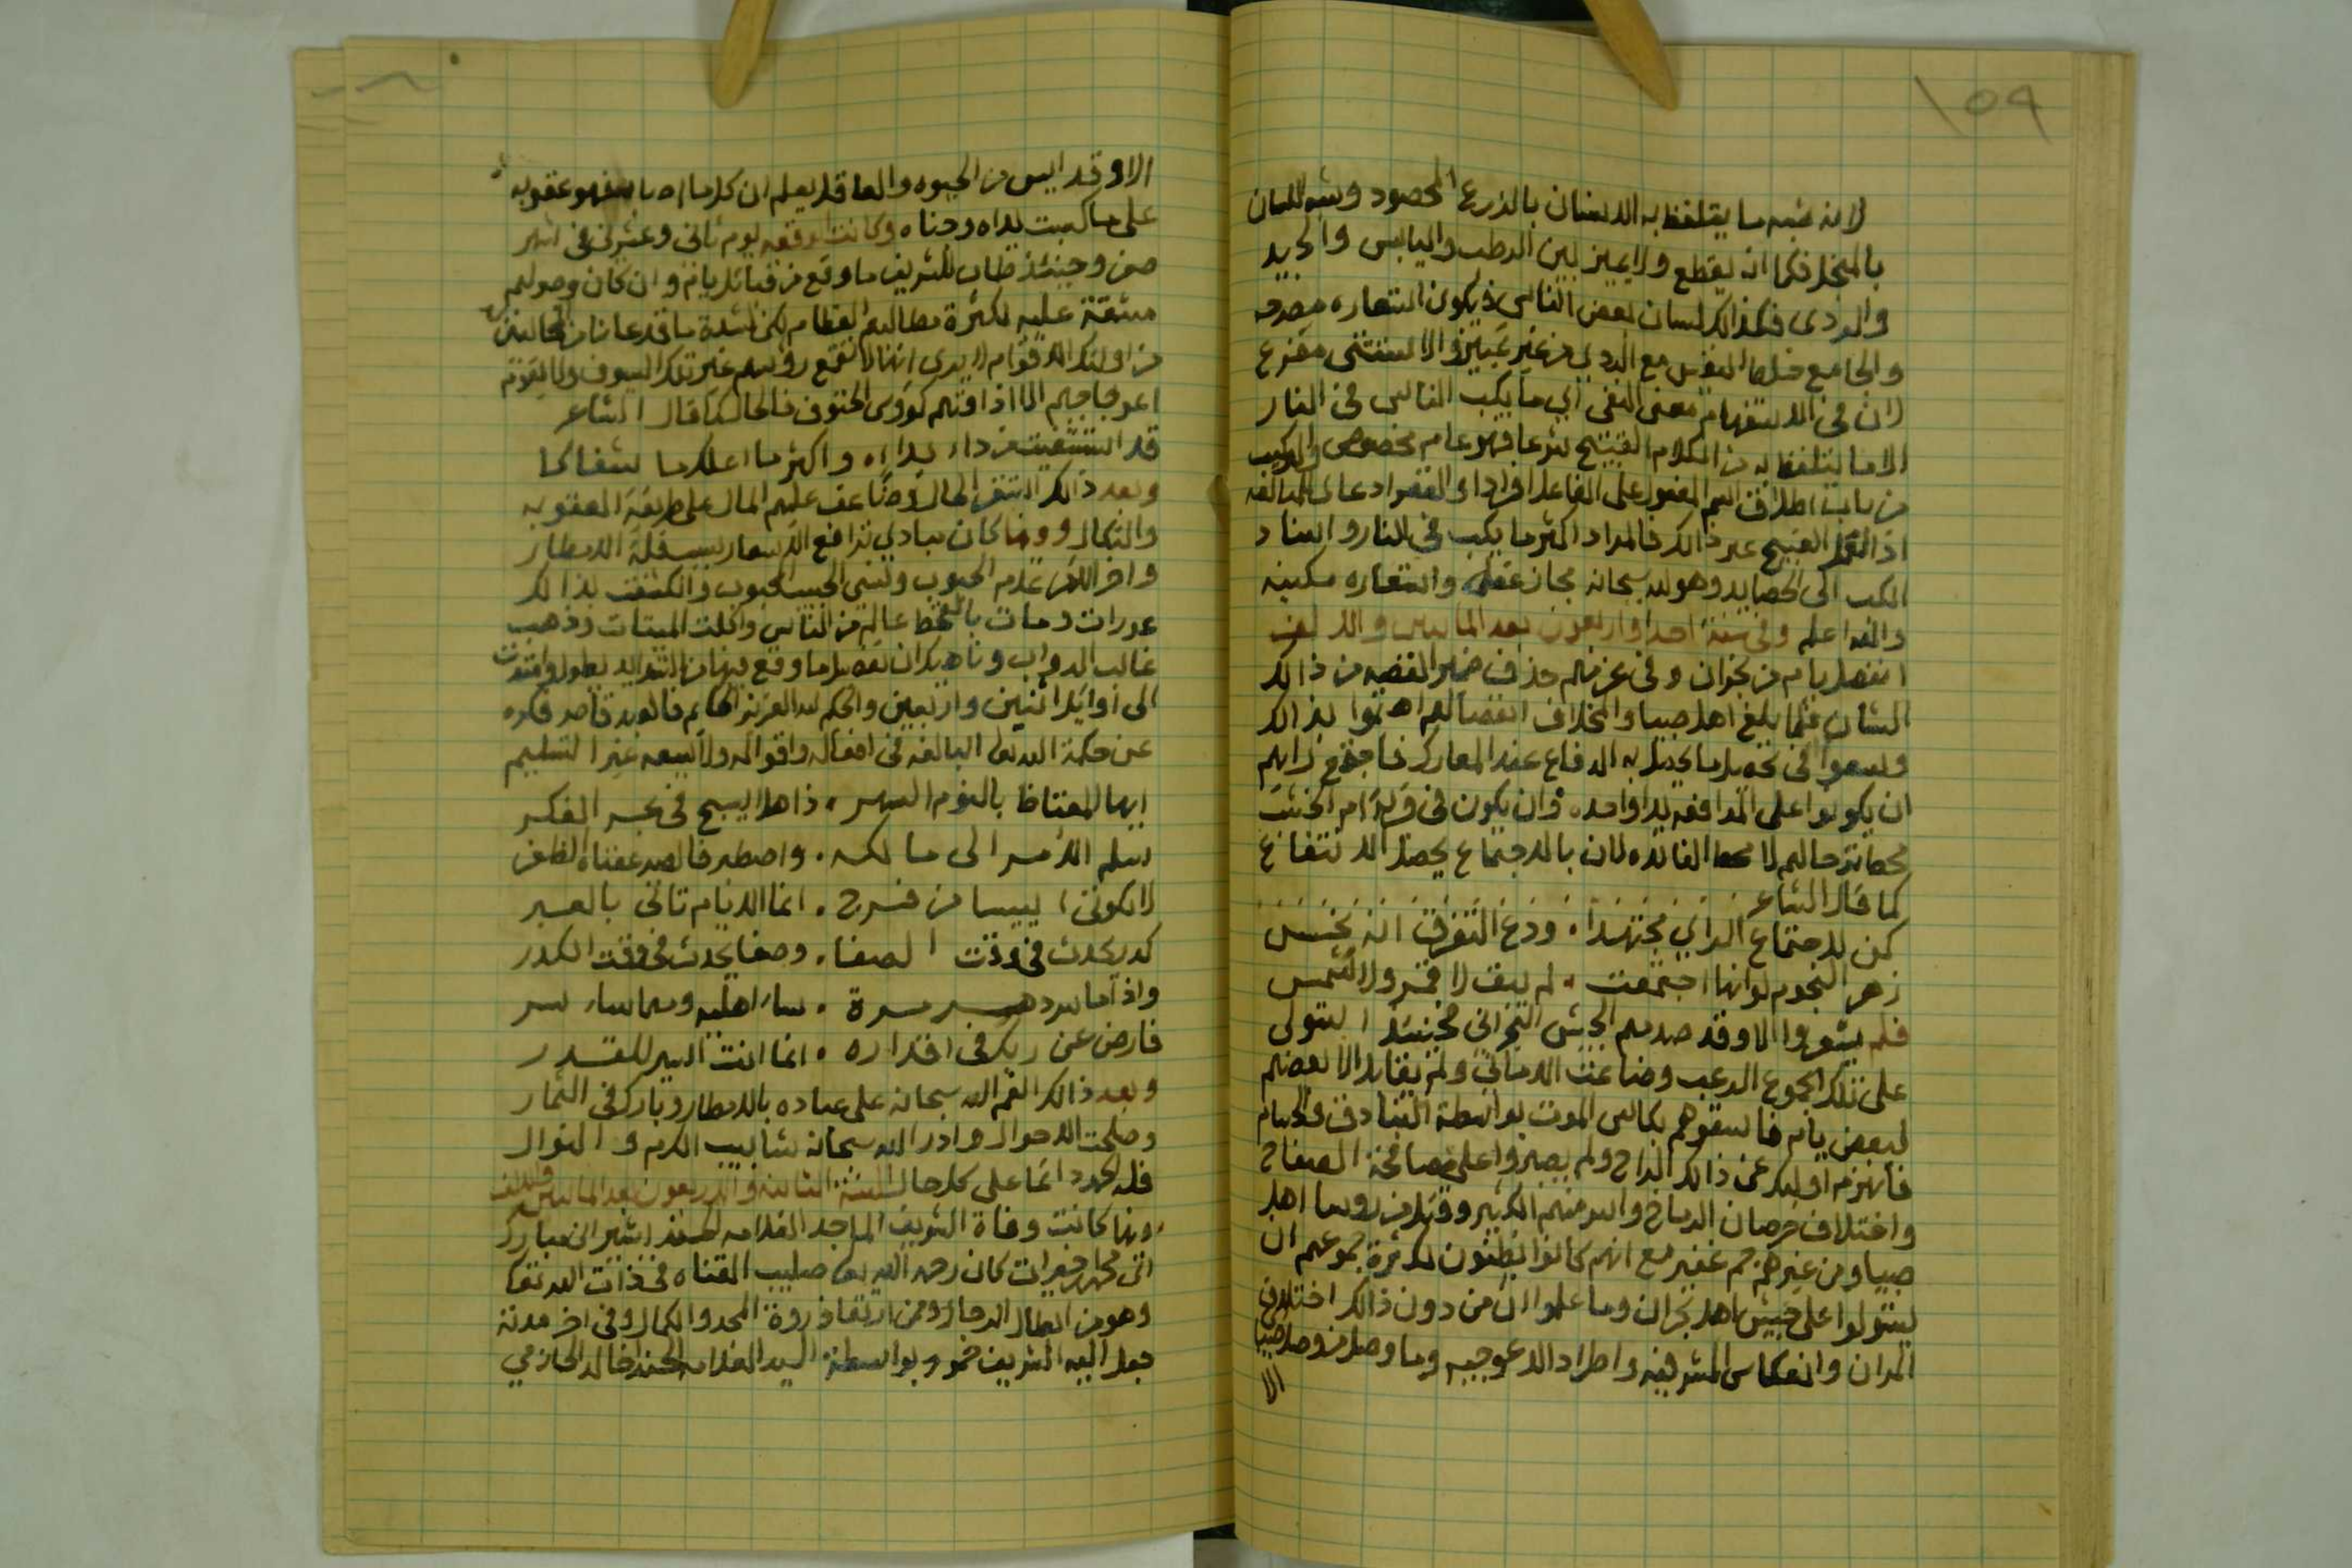 ١٥٩
لانه شبه ما يتلفظ به الانسان بالزرع المحصود وشبه اللسان
بالمنجل فكما انه يقطع ولا يميز بين الرطب واليابس والجيد
والردى فكذالك لسان بعض الناس فيكون استعاره مصرحه
والجامع خلط النفيس مع الردي من غير تمييز والاستثنى مفرع
لان في الاستفهام معنى النفي اي ما يكب الناس في النار
الا ما يتلفظ به من الكلام القبيح شرعا فهو عام مخصوص والتركيب
من باب اطلاق اسم المفعول على الفاعل افرادى القصر ادعاى للمبالغه
اذ العمل القبيح غير ذالك فالمراد اكثر ما يكب في النار واسناد
الكب الى الحصايد وهو لله سبحانه مجاز عقلي واستعاره مكنيه
والله اعلم وفي سنة احدا واربعون بعد المائتين والالف
انفصل يام من نجران وفي عزمهم حذف ضمير القصه من ذالك
الشان فلما بلغ اهل صبيا والمخلاف انفصالهم اهتموا بذالك
وسعوا في تحصيل ما يحصل به الدفاع عند المعارك فاجتمع رايهم
ان يكونوا على المدافعه يدا واحده وان يكون في قريه ام الخشب
محطا ترحالهم لا محط الفائده لان بالاجتماع يحصل الانتفاع
كما قال الشاعر
كن لاجتماع الراي مجتهدا . ودع التفرق انه نحس
زهر النجوم لو انها اجتمعت . لم يبق لا قمر ولا شمس
فلم يشعروا الا وقد صدمهم الجيش النجراني فحينئذ استولى
على تلك الجموع الرعب وضاعت الاماني ولم يقابل الا بعضهم
لبعض يام فاسقوهم بكاس الموت بواسطة البنادق والسهام
فانهزم اوليك عن ذالك الراح ولم يصبروا على مصافحة الصفاح
واختلاف خرصان الرماح واسر منهم الكثير وقتل من روسا اهل
صبيا ومن غيرهم جم غفير مع انهم كانوا يظنون لكثرة جموعهم ان
يستولوا على جيش اهل نجران وما علموا ان من دون ذالك اختلاف
المران وانعكاس المشرفيه واطراد الاعوجيه وما وصل من وصل صبيا
الا
الا وقد ايس من الحيوه والعاقل يعلم ان كلما اصابه فهو عقوبه
على ما كسبت يداه وجناه وكانت الوقعه يوم ثاني وعشرين في شهر
صفر وحينئذ طاب للشريف ما وقع من قبائل يام وان كان وصولهم
مشقة عليه لكثرة مطالبهم العظام لكن لشدة ما قد عانا من المخالفين
من اولئك الاقوام لا يرى انها لا تقمع رؤسهم غير تلك السيوف ولا يقوم
اعوجاجهم الا اذاقتهم كووس الحتوف فالحال كما قال الشاعر
قد استشفيت من داء بداء . واكثر ما اعلك ما شفاكا
وبعد ذالك استقر الحال وضاعف عليهم المال على طريقة العقوبه
والنكال وفيها كان مبادي ترافع الاسعار بسبب قلة الامطار
واخر الامر عدم الحبوب ونسى الحبيب المحبوب وانكشفت بذالك
عورات ومات بالقحط عالم من الناس واكلت الميتات وذهب
غالب الدواب وناهيك ان تفصيل ما وقع فيها من الشدايد يطول وامتدت
الى اوايل اثنين واربعين والحكم لله العزيز الحكيم فالعبد قاصر فكره
عن حكمة الله تعالى البالغه في افعاله واقواله ولا يسعه غير التسليم
ايها المعتاظ بالنوم السهر . ذاهلا يسبح في بحر الفكر
سلم الامر الى مالكه . واصطبر فالصبر عقباه الظفر
لا تكونن ايسا من فرج . انما الايام تاتي بالعبر
كدر يحدث في وقت الصفا . وصفا يحدث في وقت الكدر
واذا ما سر دهر مرة . ساء اهليه ومهما ساء سر
فارض عن ربك في اقداره . انما انت اسير للقدر
وبعد ذالك انعم الله سبحانه على عباده بالامطار وبارك في الثمار
وصلحت الاحوال وادر الله سبحانه شابيب الكرم والنوال
فله الحمد دائما على كل حال السنة الثانيه والاربعون بعد المائتين والالف
وفيها كانت وفاة الشريف الماجد العلامه الحسن بن بشير بن مبارك
ابي محمد خيرات كان رحمه الله تعالى صليب القناه في ذات الله تعالى
وهو من ابطال الرجال وممن ارتقا ذروة المجد والكمال وفي اخر مدته
جعل اليه الشريف حمود بواسطة السيد العلامه الحسن خالد الحازمي